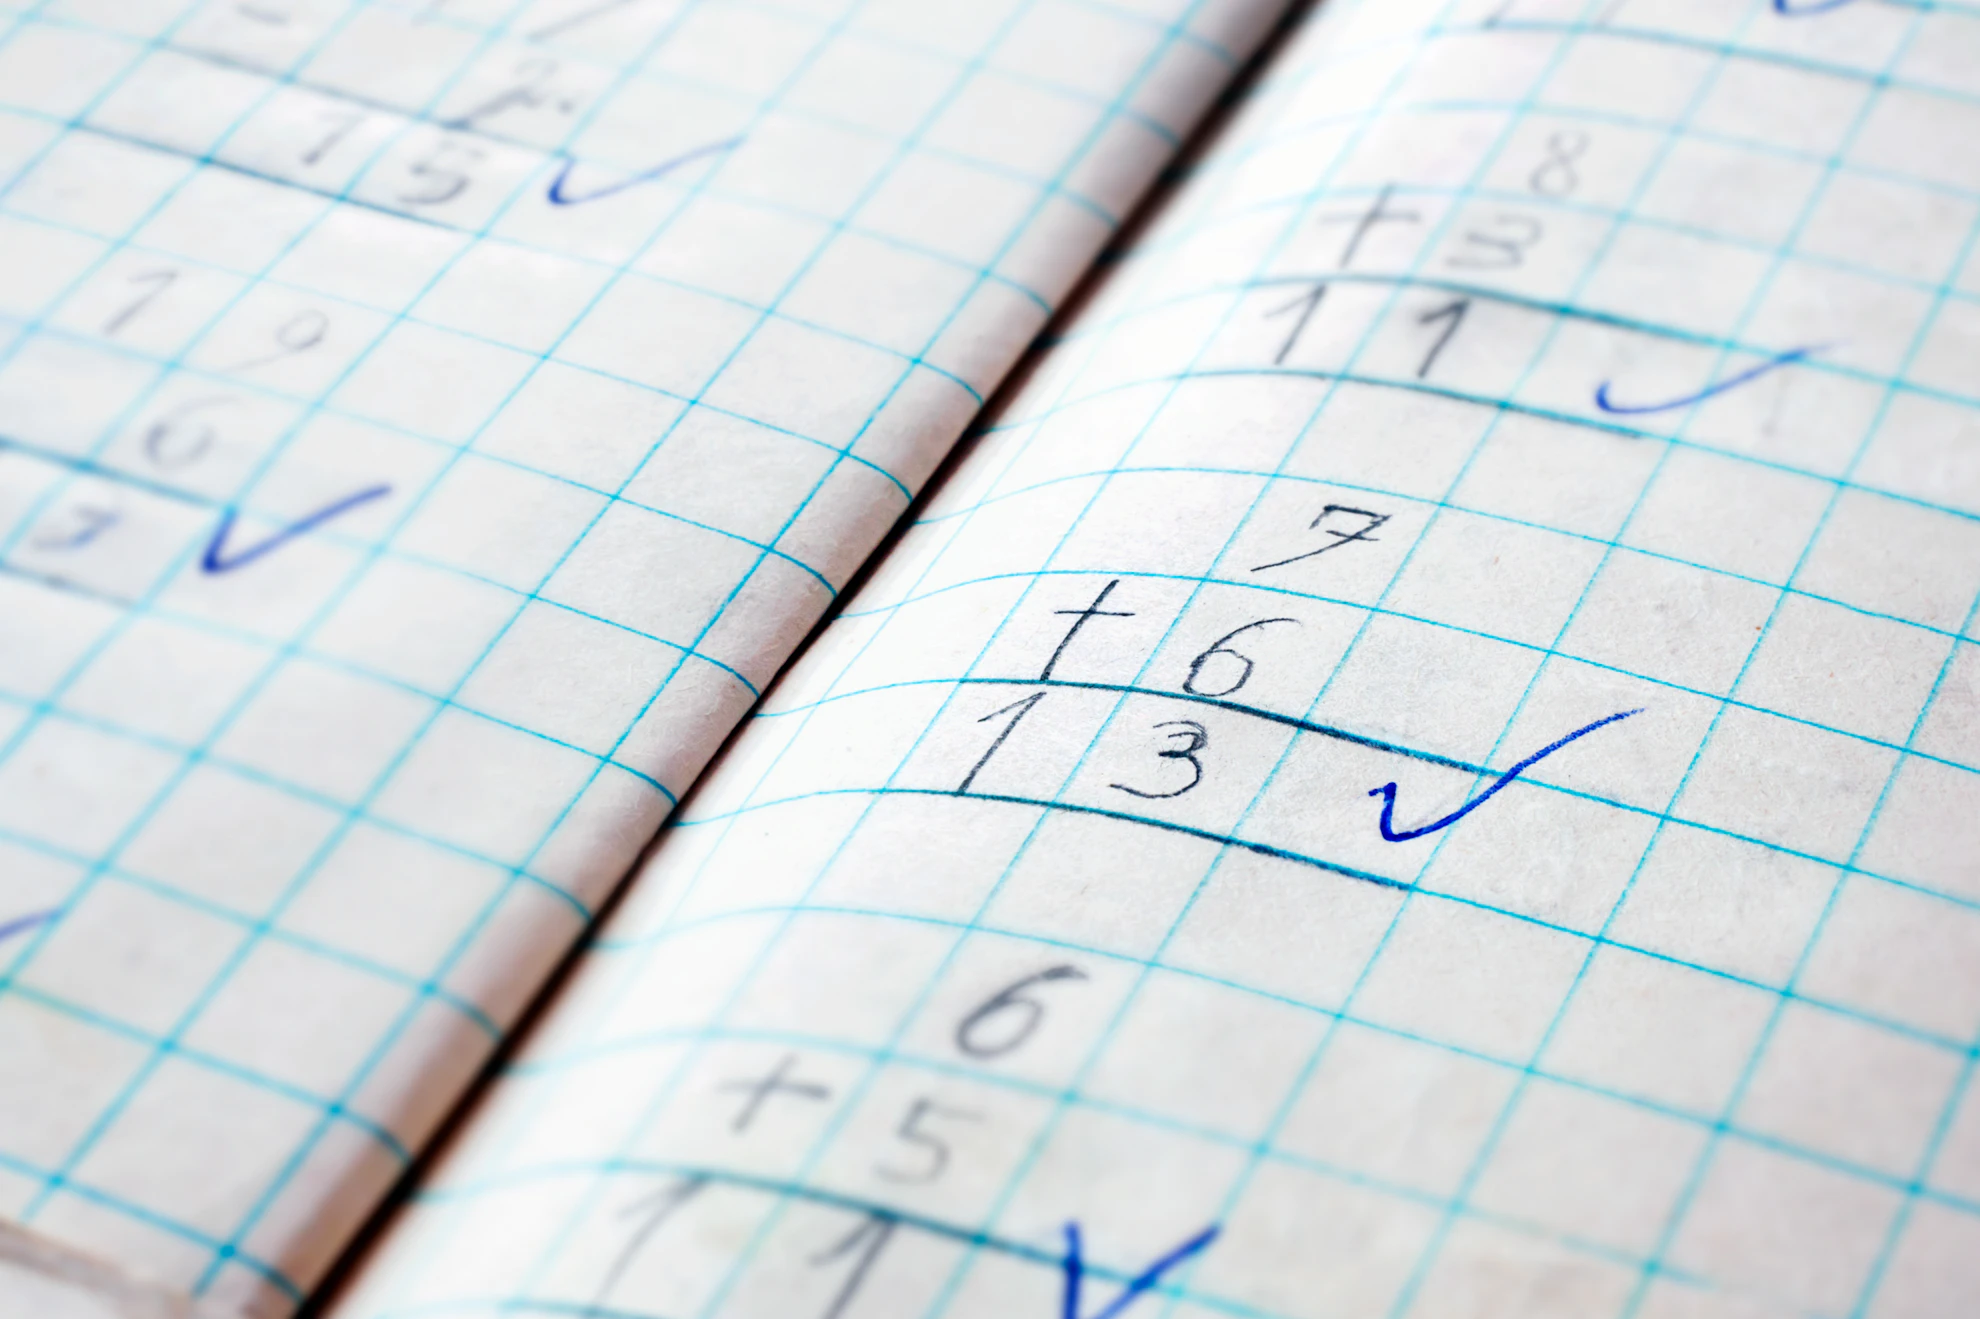 1 5 ✓
1 9
6
3 ✓
8
+ 3
1 1 ✓
7
+ 6
1 3 ✓
6
+ 5
1 1 ✓